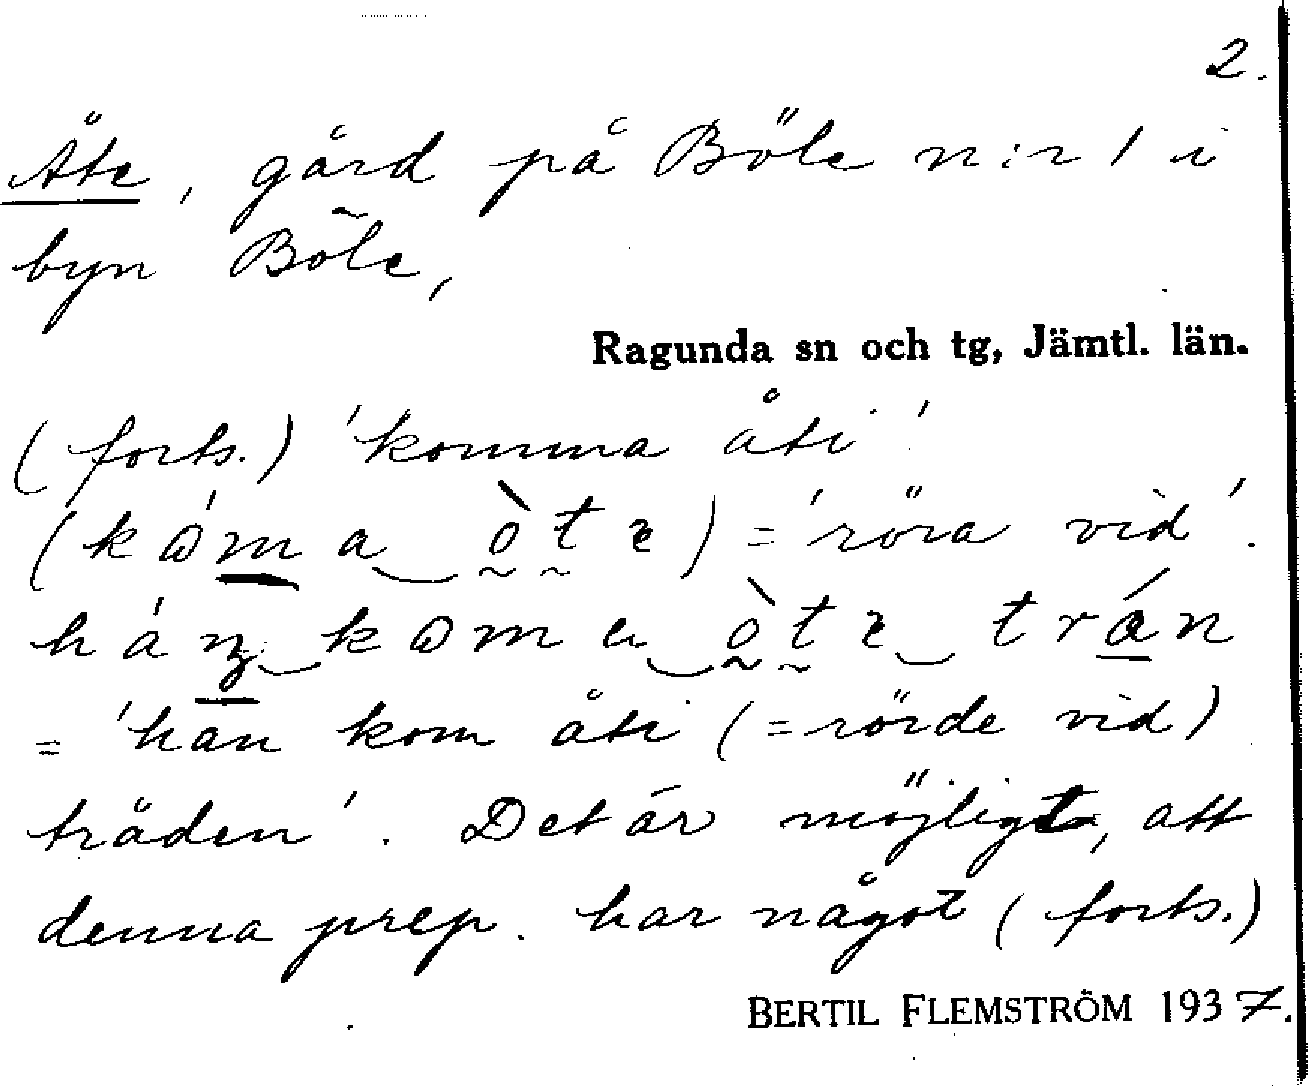 2.
Åte, gård på Böle n:r 1 i
byn Böle,
Ragunda sn och tg, Jämtl. län.
(forts.) 'komma åti'
(kóma òte) = 'röra vid'.
= 'han kom åti (=rörde vid)
tråden'. Det är möjligt, att
denna prep. har något (forts.)
BERTIL FLEMSTRÖM 1937.